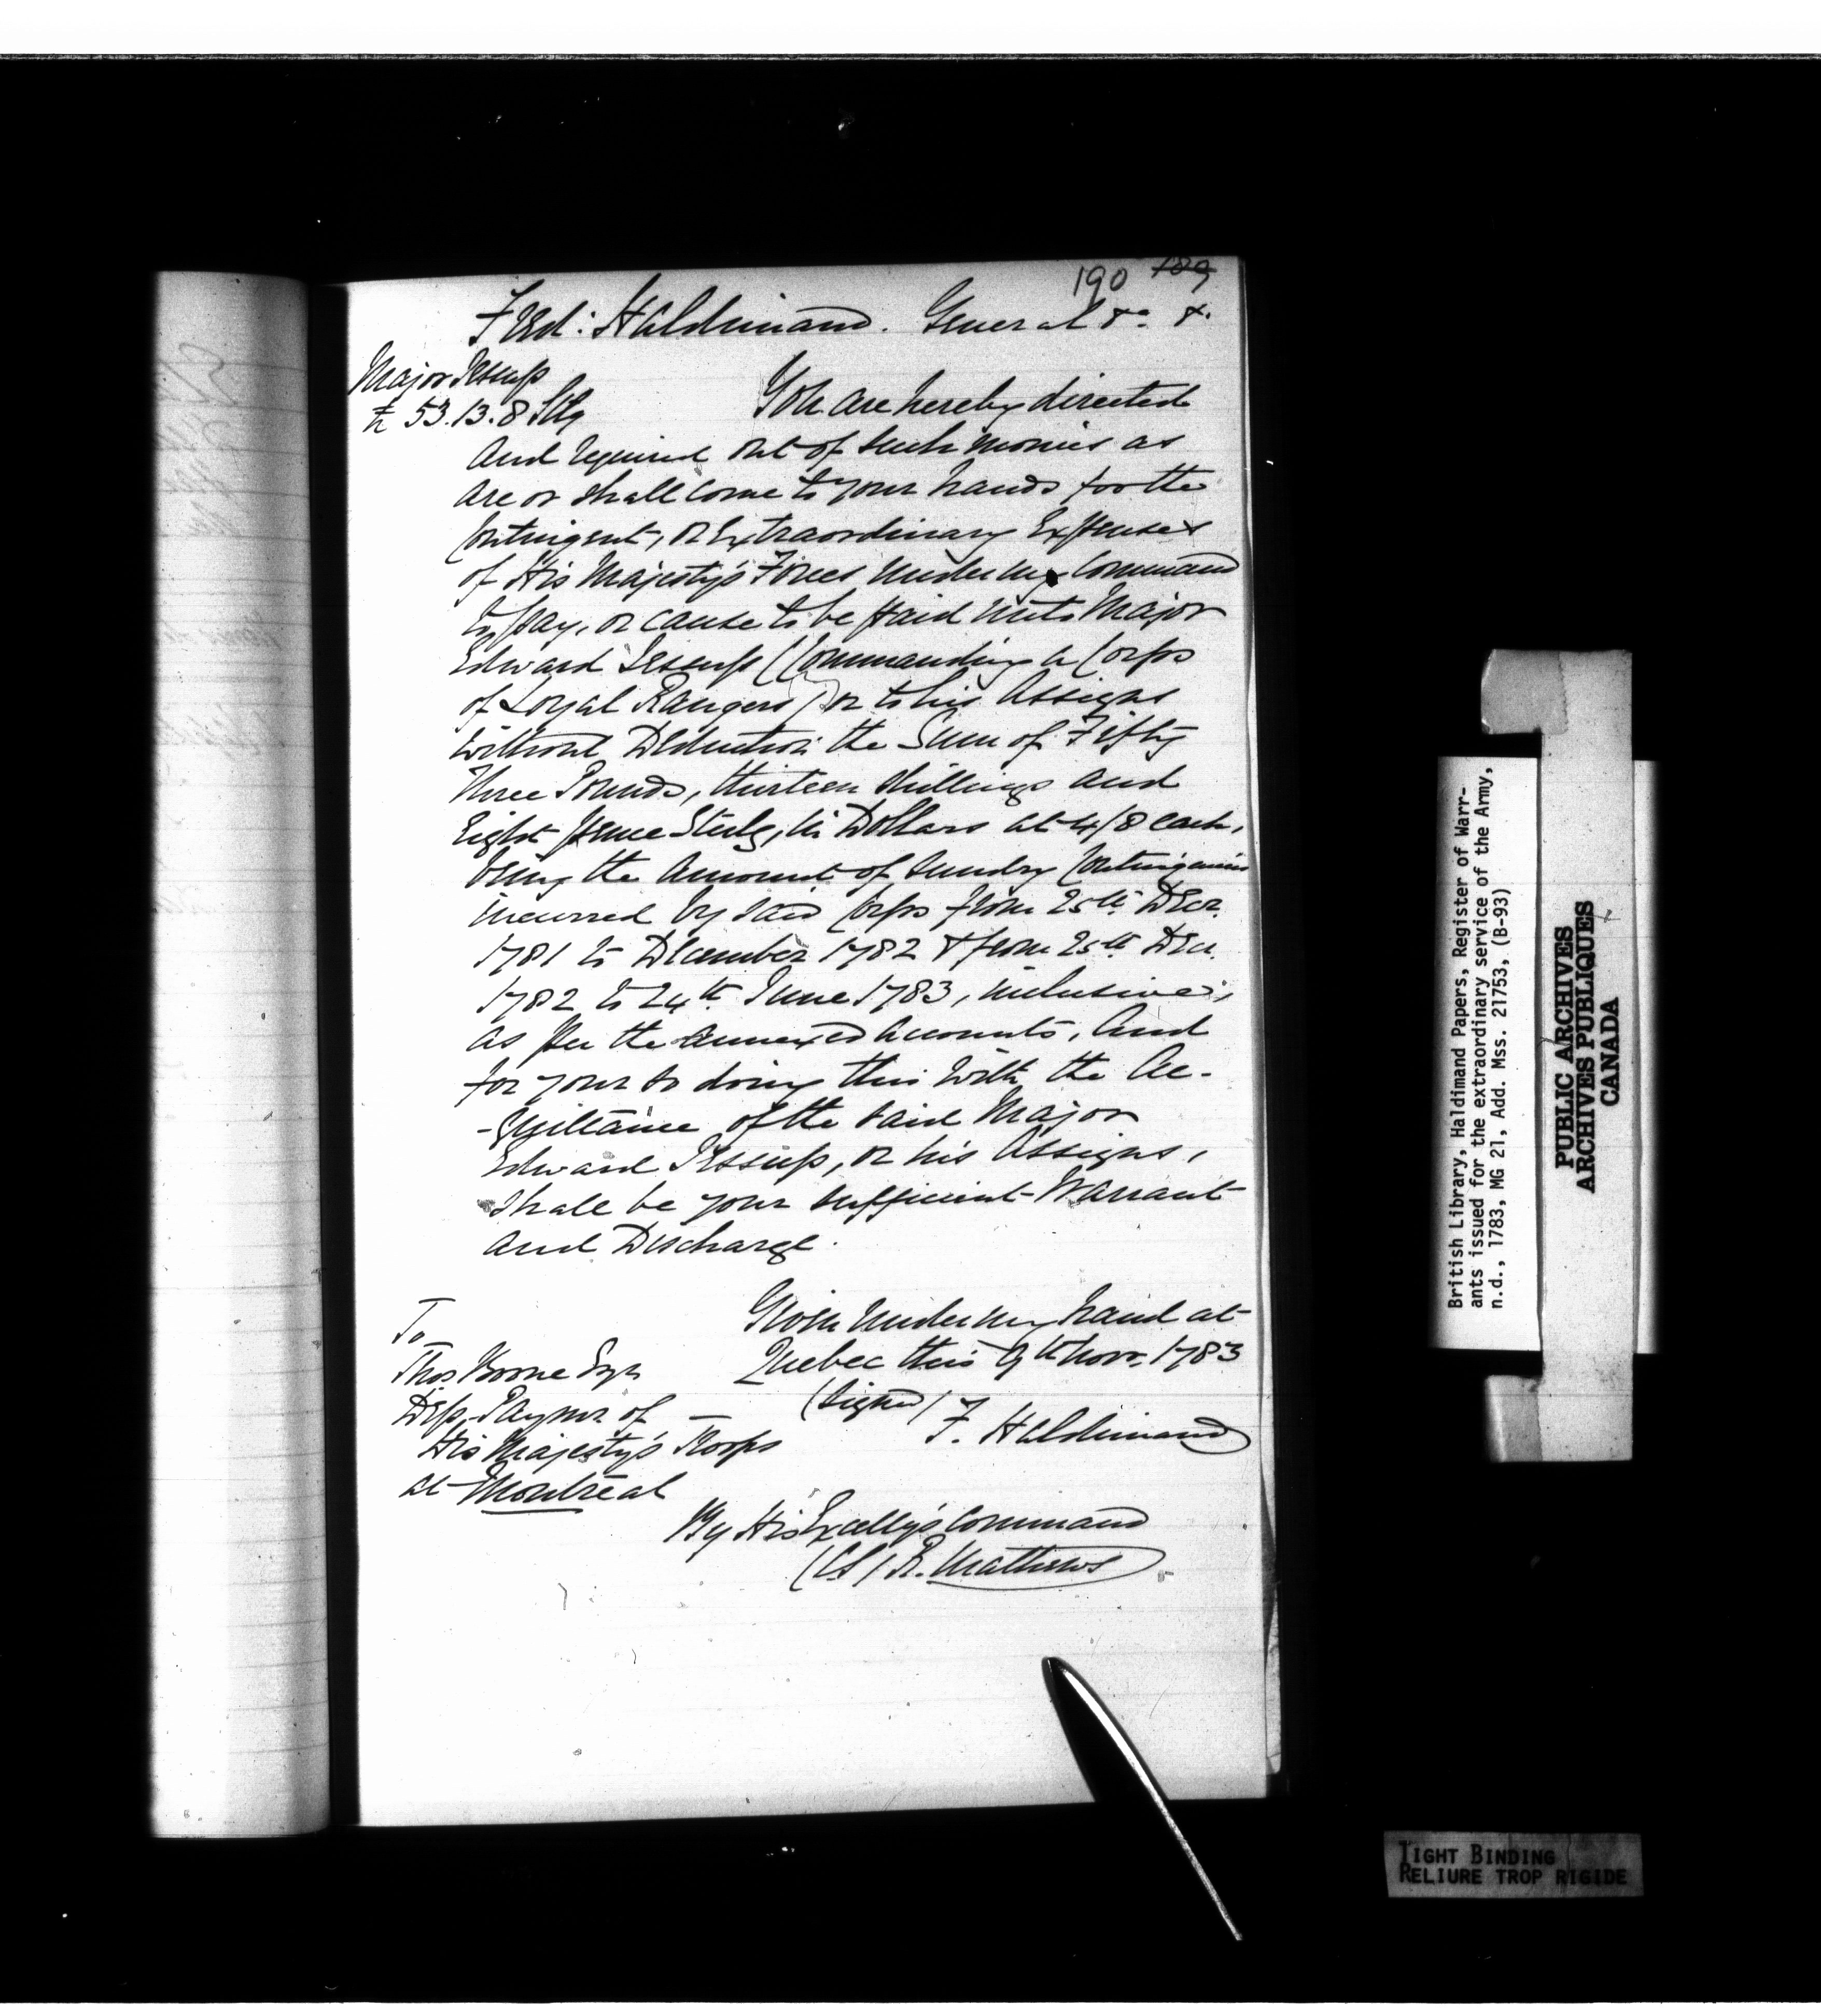 190 189
Fred: Haldimand. General &c &.
Major Jessup
£ 53.13.8 Stg
You are hereby directed
and required out of such monies as
are or shall come to your hands for the
Contingent, or Extraordinary Expenses
of His Majesty's Forces under my Command
to pay, or cause to be paid unto Major
Edward Jessup (Commanding a Corps
of Loyal Rangers) or to his Assigns
without Deduction the Sum of Fifty
three Pounds, thirteen shillings and
Eight pence Sterlg, in Dollars at 4/8 each,
being the amount of sundry Contingencies
incurred by said Corps from 25th Decr.
1781 to December 1782 & from 25th Decr.
1782 to 24th June 1783, inclusive,
as per the annexed accounts, and
for your so doing this with the Ac-
-quittance of the said Major
Edward Jessup, or his Assigns,
shall be your sufficient Warrant
and Discharge.
Given under my hand at
Quebec this 9th Novr. 1783
(signed) F. Haldimand
To
Thos Boone Esqr
Dep. Paymr of
His Majesty's Troops
at Montreal
By His Excelly's Command
R. Mathews
British Library, Haldimand Papers, Register of Warr-
ants issued for the extraordinary service of the Army,
n.d., 1783, MG 21, Add. Mss. 21753, (B-93)
PUBLIC ARCHIVES
ARCHIVES PUBLIQUES
CANADA
TIGHT BINDING
RELIURE TROP RIGIDE